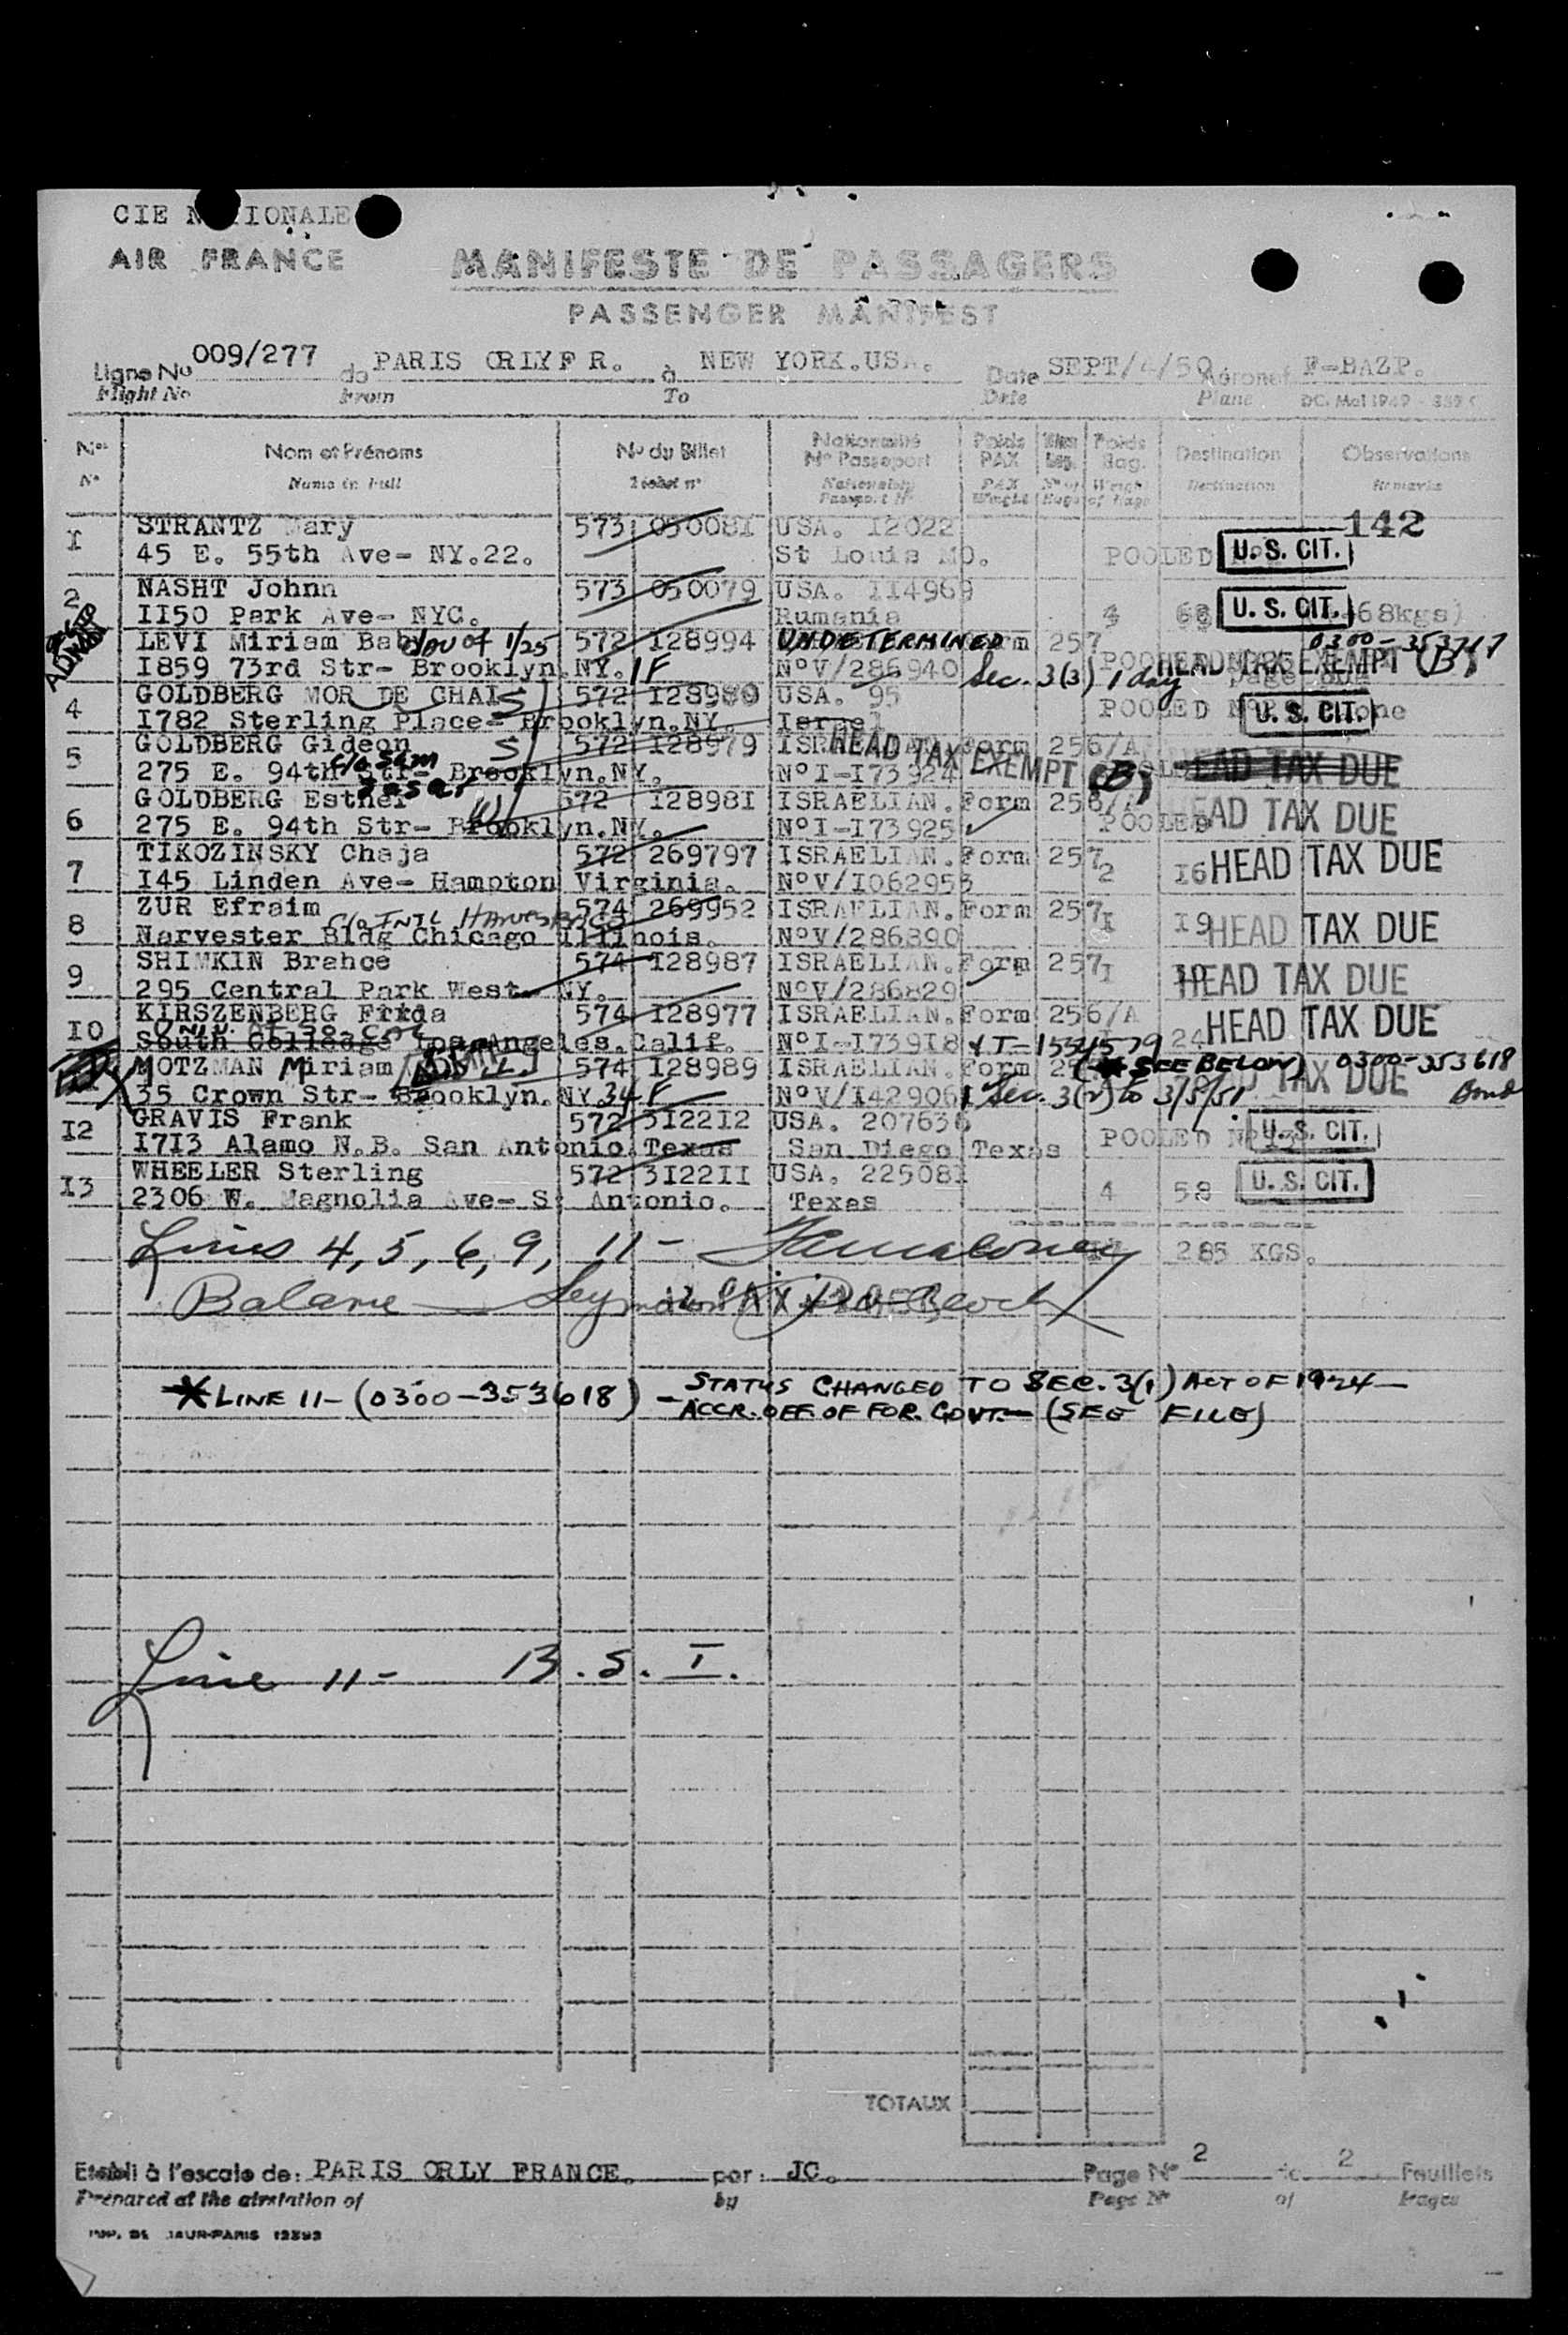 CIE N TIONALE
AIR FRANCE
MANIFESTE DE PASSAGERS
PASSENGER MANIFEST
Ligne No 009/277 de PARIS ORLY F R. à NEW YORK.USA. Date SEPT/4/50 Aéronef F-BAZP.
Flight No From To Date Plane DC. Mai 1949
Nos Nom et Prénoms No du Billet Nationalité No Passeport Poids PAX Poids Bag. Destination Observations
No Name in full Ticket no Nationality Passport No PAX Weight No of Bags Weight of Bags Destination Remarks
142
1 STRANTZ Mary 573 050081 USA. I2022
45 E. 55th Ave- NY.22. St Louis MO. POOLED U.S. CIT.
2 NASHT Johnn 573 050079 USA. II4969
II50 Park Ave- NYC. Rumania 4 68 U.S. CIT. (68kgs)
LEVI Miriam Bab dau of 1/25 572 I28994 UNDETERMINED Form 257 0300-353717
I859 73rd Str- Brooklyn.NY. 1F NºV/286940 Sec. 3(3) 1 day HEAD TAX EXEMPT (B)
4 GOLDBERG MOR DE CHAI S 572 I28980 USA. 95
I782 Sterling Place- Brooklyn.NY. Israel POOLED U.S. CIT.
5 GOLDBERG Gideon S 572 I28979 Form 256/A HEAD TAX EXEMPT (B)
275 E. 94th Str- Brooklyn.NY. c/o Sam NºI-I73924 HEAD TAX DUE
6 GOLDBERG Esther W 572 I28981 ISRAELIAN. Form 256/A
275 E. 94th Str- Brooklyn.NY. NºI-I73925 POOLED HEAD TAX DUE
7 TIKOZINSKY Chaja 572 269797 ISRAELIAN. Form 257
I45 Linden Ave- Hampton Virginia. NºV/I062953 2 I6 HEAD TAX DUE
8 ZUR Efraim 574 269952 ISRAELIAN. Form 257
Narvester Bldg Chicago Illinois. NºV/286890 I I9 HEAD TAX DUE
9 SHIMKIN Brahce 574 I28987 ISRAELIAN. Form 257
295 Central Park West- NY. NºV/286829 I HEAD TAX DUE
10 KIRSZENBERG Frida 574 I28977 ISRAELIAN. Form 256/A
South College Los Angeles.Calif. NºI-I73918 24 HEAD TAX DUE
MOTZMAN Miriam 574 I28989 ISRAELIAN. Form (* SEE BELOW) 0300-353618
35 Crown Str- Brooklyn.NY. 34 F NºV/I42906 Sec. 3(2) to 3/3/51 TAX DUE Bond
I2 GRAVIS Frank 572 3I22I2 USA. 207636
I7I3 Alamo N.B. San Antonio Texas San Diego Texas POOLED U.S. CIT.
I3 WHEELER Sterling 572 3I22II USA. 225081
2306 W. Magnolia Ave- St Antonio. Texas 4 58 U.S. CIT.
Lines 4, 5, 6, 9, 11 - 285 KGS.
Balance
* LINE 11- (0300-353618) - STATUS CHANGED TO SEC. 3(1) ACT OF 1924-
ACCR. OFF. OF FOR. GOVT.- (SEE FILE)
Line 11- B.S.I.
TOTAUX
Etabli à l'escale de: PARIS ORLY FRANCE. par: JC. Page No 2 de 2 Feuillets
Prepared at the airstation of by Page No of Pages